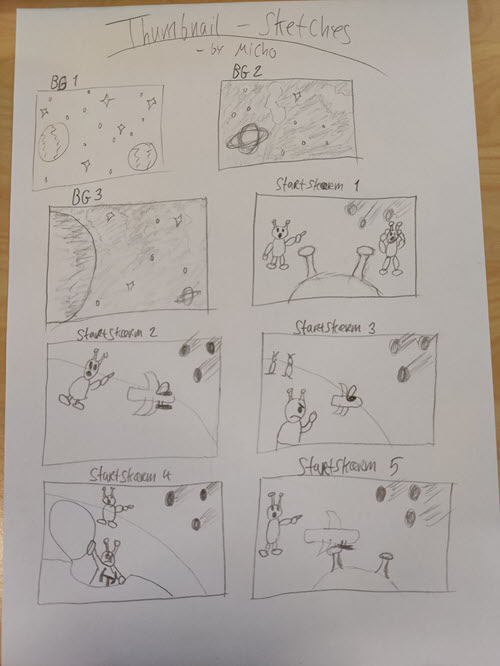 Thumbnail - Sketches
- by Micho
BG 1
BG 2
BG 3
Startskærm 1
Startskærm 2
Startskærm 3
Startskærm 4
Startskærm 5